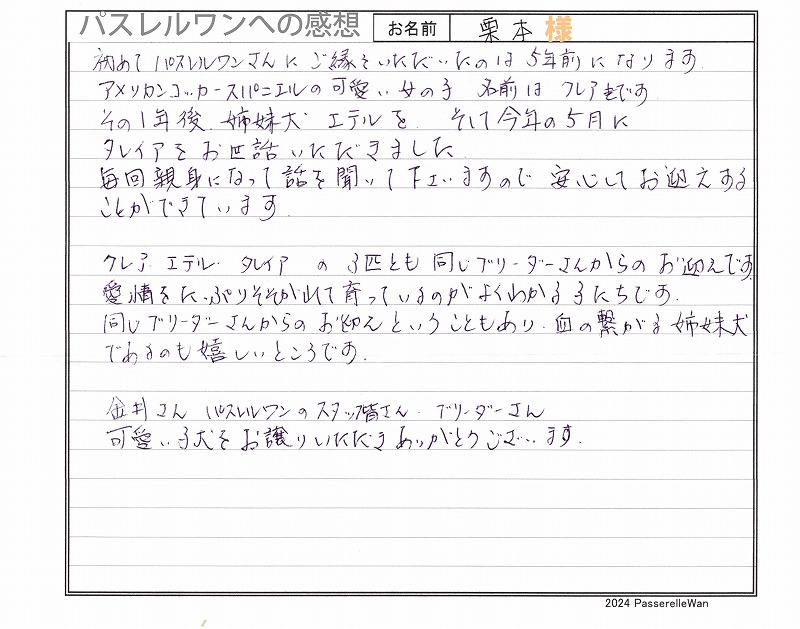 パスレルワンへの感想 お名前 栗本 様
初めて パスレルワンさんに ご縁をいただいたのは 5年前になります
アメリカンコッカースパニエルの可愛い女の子 名前は クレアです
その1年後、姉妹犬 エテルを、そして今年の5月に
タレイアをお世話いただきました
毎回親身になって話を聞いて下さいますので 安心してお迎えする
ことができています.
クレア・エテル・タレイア の 3匹とも 同じブリーダーさんからの お迎えです
愛情をたっぷりそそがれて育っているのがよくわかる子たちです.
同じブリーダーさんからの お迎えということもあり、血の繋がる姉妹犬
であるのも嬉しいところです.
金井さん パスレルワンのスタッフ皆さん・ブリーダーさん
可愛い子犬をお譲りいただきありがとうございます.
2024 PasserelleWan